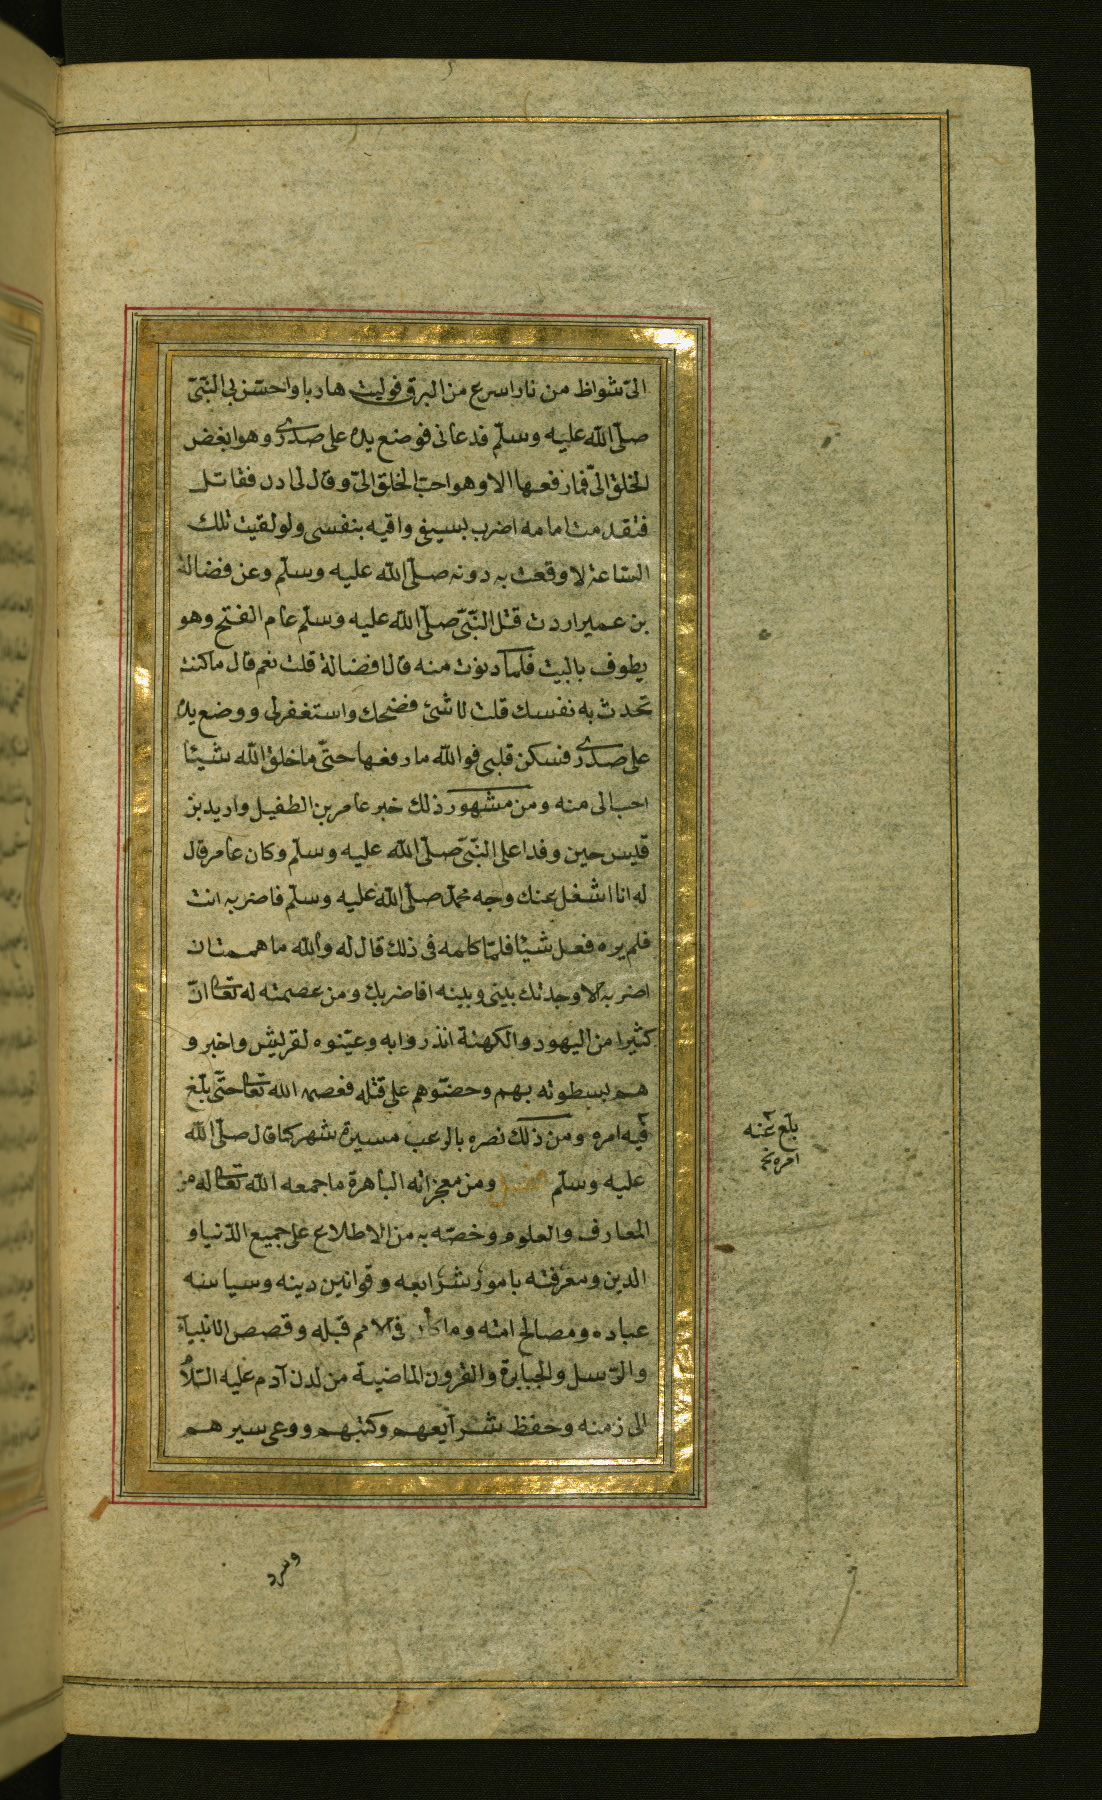 الىّ شواظ من نار اسرع من البرق فوليت هاربا واحسّ بى النّبىّ
صلّى الله عليه وسلّم فدعانى فوضع يده على صدرى وهو ابغض
الخلق الىّ فما رفعها الا وهو احبّ الخلق الىّ وقال لى ادن فقاتل
فتقدمت امامه اضرب بسيفى واقيه بنفسى ولو لقيت تلك
السّاعة لاوقعت به دونه صلّى الله عليه وسلّم وعن فضالة
بن عمير اردت قتل النّبىّ صلّى الله عليه وسلّم عام الفتح وهو
يطوف بالبيت فلمّا دنوت منه قال افضالة قلت نعم قال ما كنت
تحدث به نفسك قلت لا شئ فضحك واستغفر لى ووضع يده
على صدرى فسكن قلبى فو الله ما رفعها حتّى ما خلق الله شيئا
احب الى منه ومن مشهور ذلك خبر عامر بن الطفيل واربد بن
قيس حين وفدا على النّبىّ صلّى الله عليه وسلّم وكان عامر قال
له انا اشغل عنك وجه محمد صلّى الله عليه وسلّم فاضربه انت
فلم يره فعل شيئا فلمّا كلمه فى ذلك قال له والله ما هممت ان
اضربه الا وجدتك بينى وبينه افاضربك ومن عصمته له تعالى انّ
كثيرا من اليهود والكهنة انذروا به وعيّنوه لقريش واخبرو
هم بسطوته بهم وحضّوهم على قتله فعصمه الله تعالى حتّى بلغ
فيه امره ومن ذلك نصره بالرعب مسيرة شهر كما قال صلّى الله
عليه وسلّم فصل ومن معجزاته الباهرة ما جمعه الله تعالى له من
المعارف والعلوم وخصّه به من الاطلاع على جميع الدّنيا و
الدين ومعرفته بامور شرايعه وقوانين دينه وسياسه
عباده ومصالح امته وما كان فى الامم قبله وقصص الانبيآء
والرّسل والجبابرة والقرون الماضية من لدن آدم عليه السّلام
الى زمنه وحفظ شرآيعهم وكتبهم ووعى سيرهم
بلغ عنه
امره
وسرد